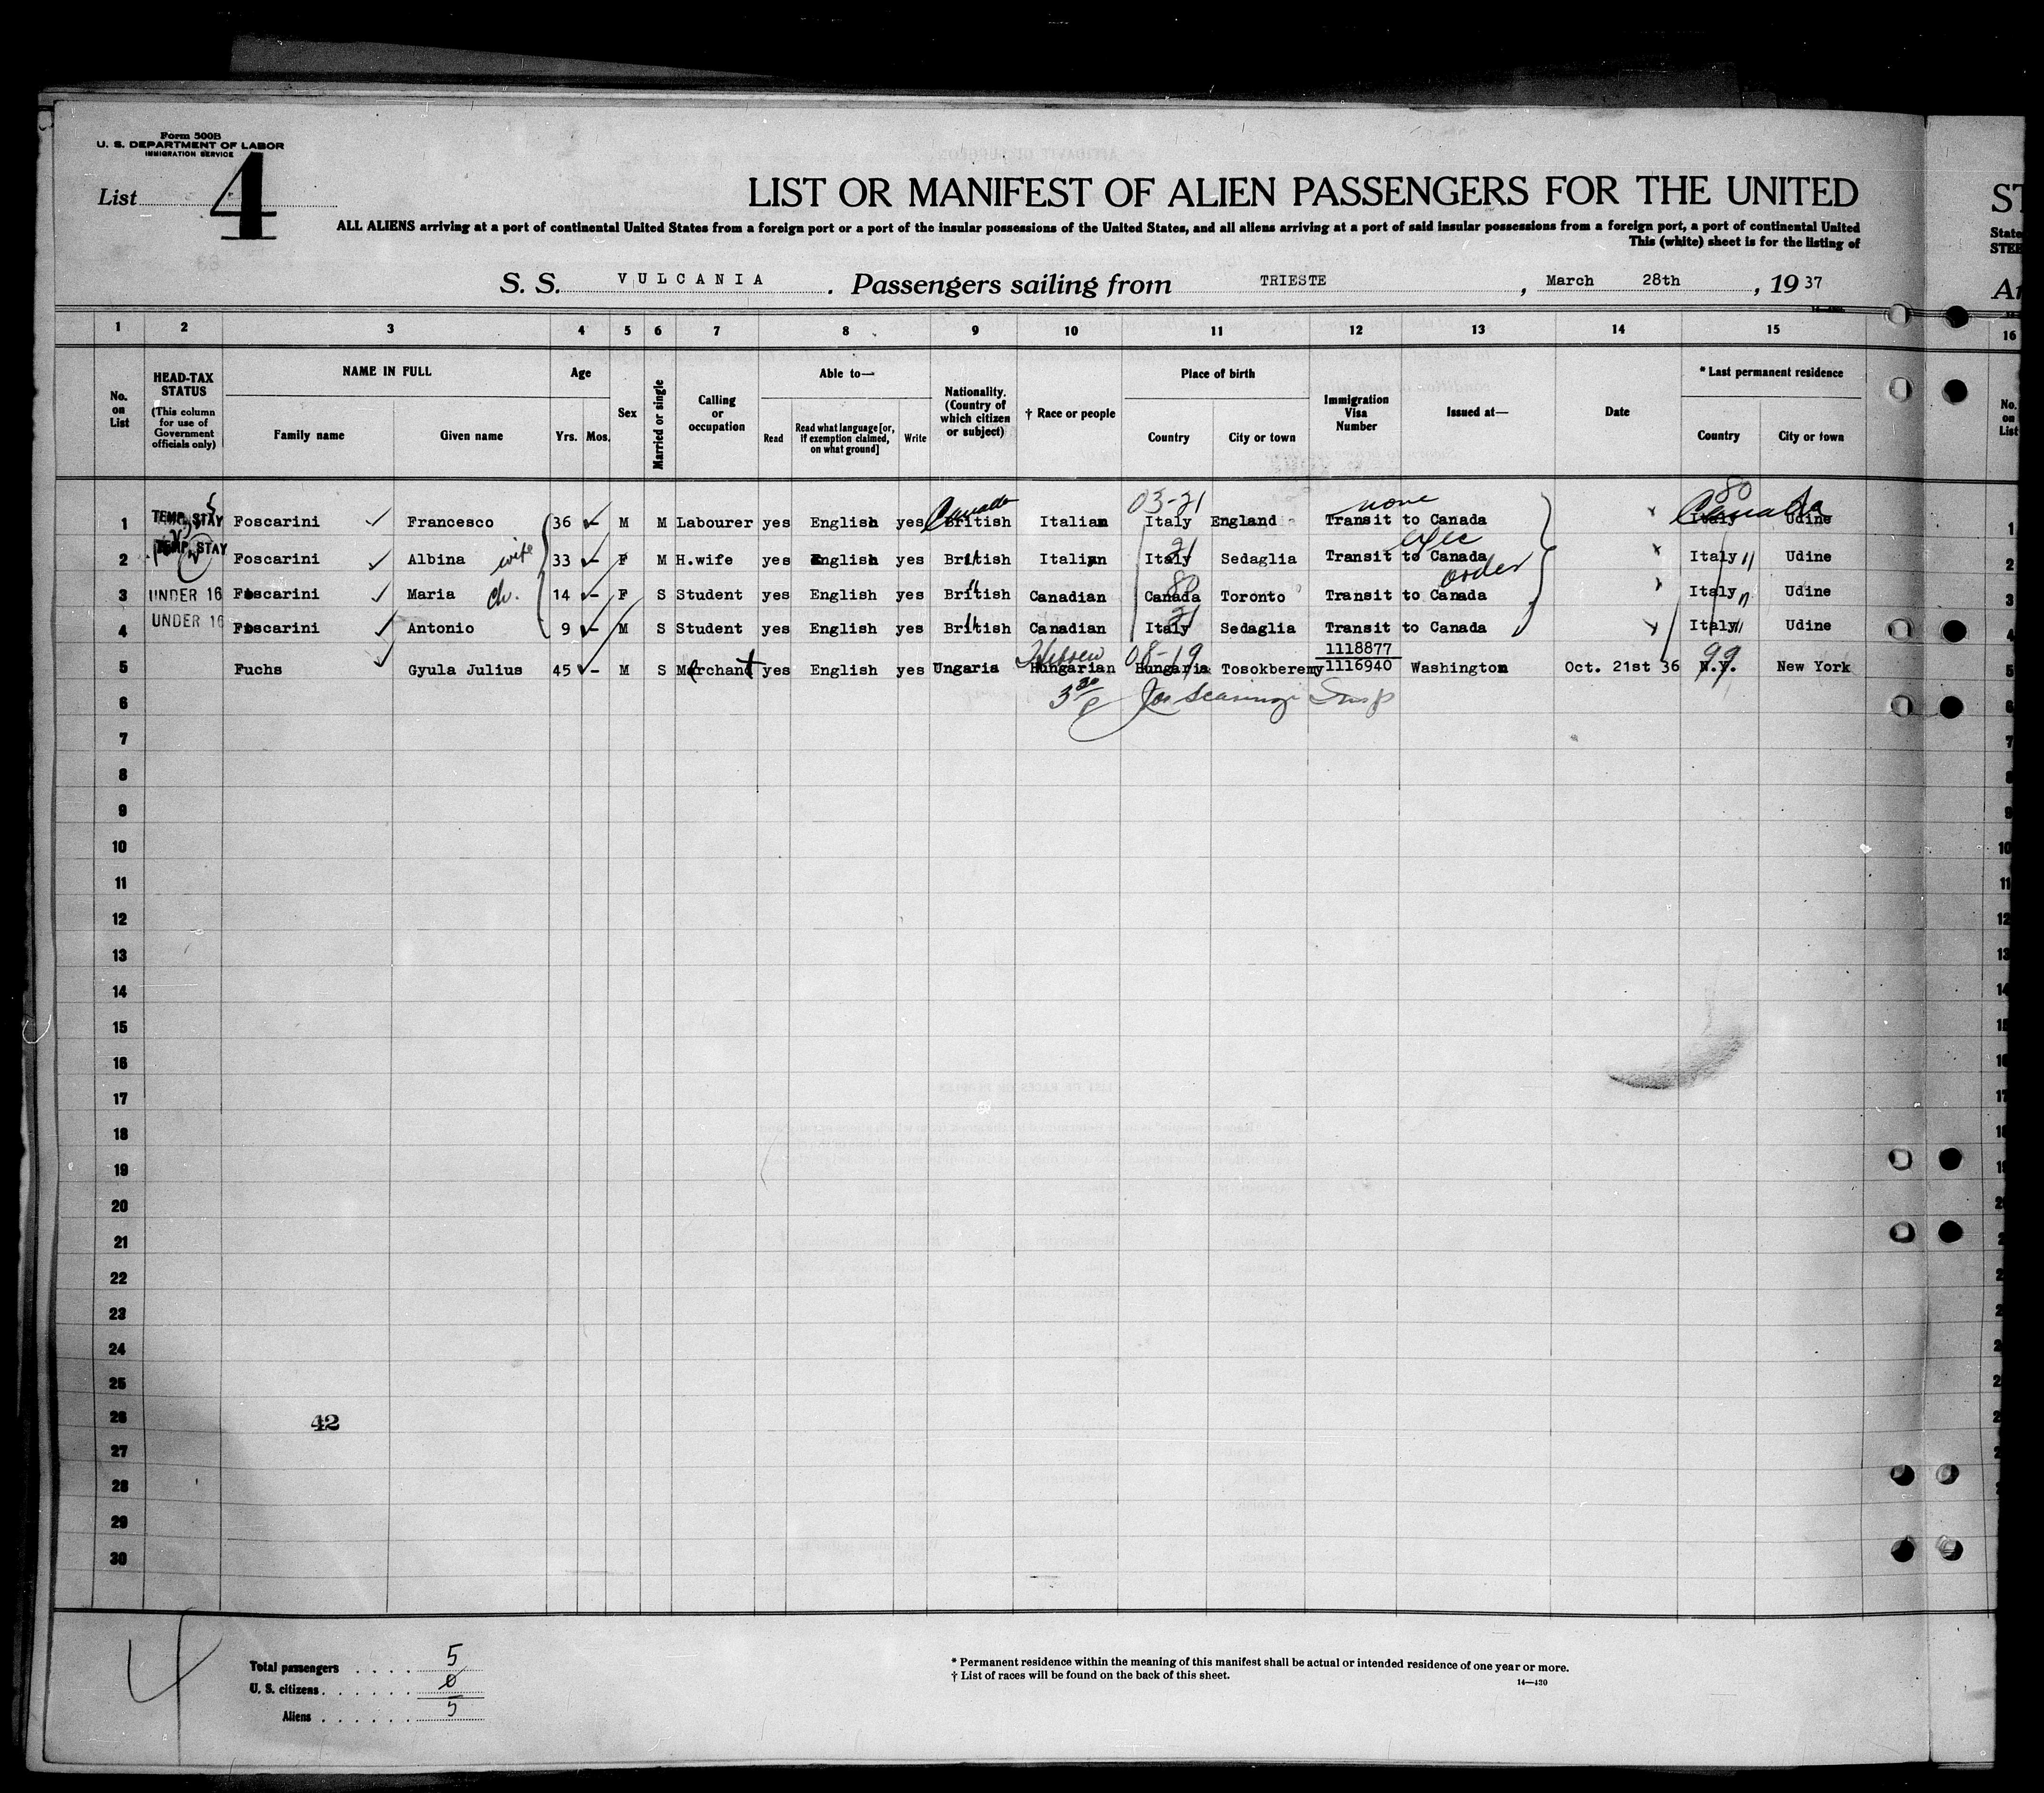 Form 500B
U. S. DEPARTMENT OF LABOR
IMMIGRATION SERVICE
List 4
LIST OR MANIFEST OF ALIEN PASSENGERS FOR THE UNITED
ST
ALL ALIENS arriving at a port of continental United States from a foreign port or a port of the insular possessions of the United States, and all aliens arriving at a port of said insular possessions from a foreign port, a port of continental United
State
This (white) sheet is for the listing of
STEE
S. S. VULCANIA. Passengers sailing from TRIESTE, March 28th, 1937
1 2 3 4 5 6 7 8 9 10 11 12 13 14 15 16
No. on List
HEAD-TAX STATUS (This column for use of Government officials only)
NAME IN FULL
Family name Given name
Age
Yrs. Mos.
Sex
Married or single
Calling or occupation
Able to—
Read Read what language [or, if exemption claimed, on what ground] Write
Nationality. (Country of which citizen or subject)
† Race or people
Place of birth
Country City or town
Immigration Visa Number
Issued at—
Date
* Last permanent residence
Country City or town
No. on List
Canada 03-21 none 80 Canada
1 TEMP. STAY Foscarini Francesco 36 – M M Labourer yes English yes British Italian Italy England Transit to Canada Italy Udine 1
exec
2 TEMP. STAY Foscarini Albina wife 33 – F M H.wife yes English yes British Italian Italy 21 Sedaglia Transit to Canada Italy " Udine 2
order
3 UNDER 16 Foscarini Maria ch. 14 – F S Student yes English yes British " Canadian Canada 80 Toronto Transit to Canada Italy " Udine 3
4 UNDER 16 Foscarini Antonio 9 – M S Student yes English yes British " Canadian Italy 21 Sedaglia Transit to Canada Italy " Udine 4
Hebrew 08-19 1118877 99
5 Fuchs Gyula Julius 45 – M S Merchant yes English yes Ungaria Hungarian Hungaria Tosokberemy 1116940 Washington Oct. 21st 36 N.Y. New York 5
6 6
7 7
8 8
9 9
10 10
11 11
12 12
13 13
14 14
15 15
16 16
17 17
18 18
19
20
21
22
23
24
25
26 42
27
28
29
30
4
Total passengers . . . . 5
U. S. citizens . . . . . . 0
Aliens . . . . . . 5
* Permanent residence within the meaning of this manifest shall be actual or intended residence of one year or more.
† List of races will be found on the back of this sheet.
14—430